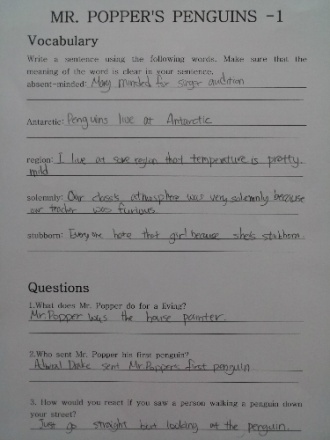 MR. POPPER'S PENGUINS -1
Vocabulary
Write a sentence using the following words. Make sure that the
meaning of the word is clear in your sentence.
absent-minded: Mary minded for singer audition
Antarctic: Penguins live at Antarctic
region: I live at some region that temperature is pretty
mild
solemnly: Our class's atmosphere was very solemnly because
our teacher was furious.
stubborn: Everyone hate that girl because she's stubborn.
Questions
1.What does Mr. Popper do for a living?
Mr.Popper was the house painter.
2.Who sent Mr. Popper his first penguin?
Admiral Drake sent Mr.Popper's first penguin
3. How would you react if you saw a person walking a penguin down
your street?
Just go straight but looking at the penguin.